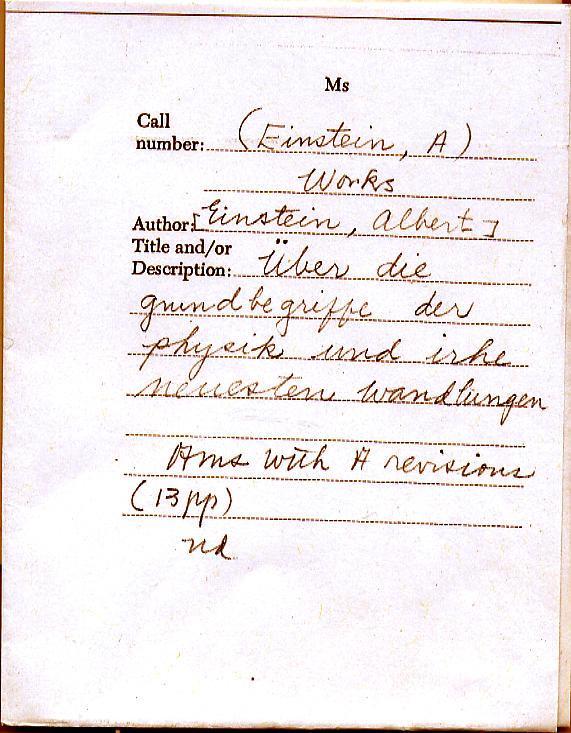 Ms
Call
number: (Einstein, A)
Works
Author: [Einstein, Albert]
Title and/or
Description: Über die
grundbegriffe der
physik und irhe
neuesten Wandlungen
Ams with A revisions
(13pp)
nd